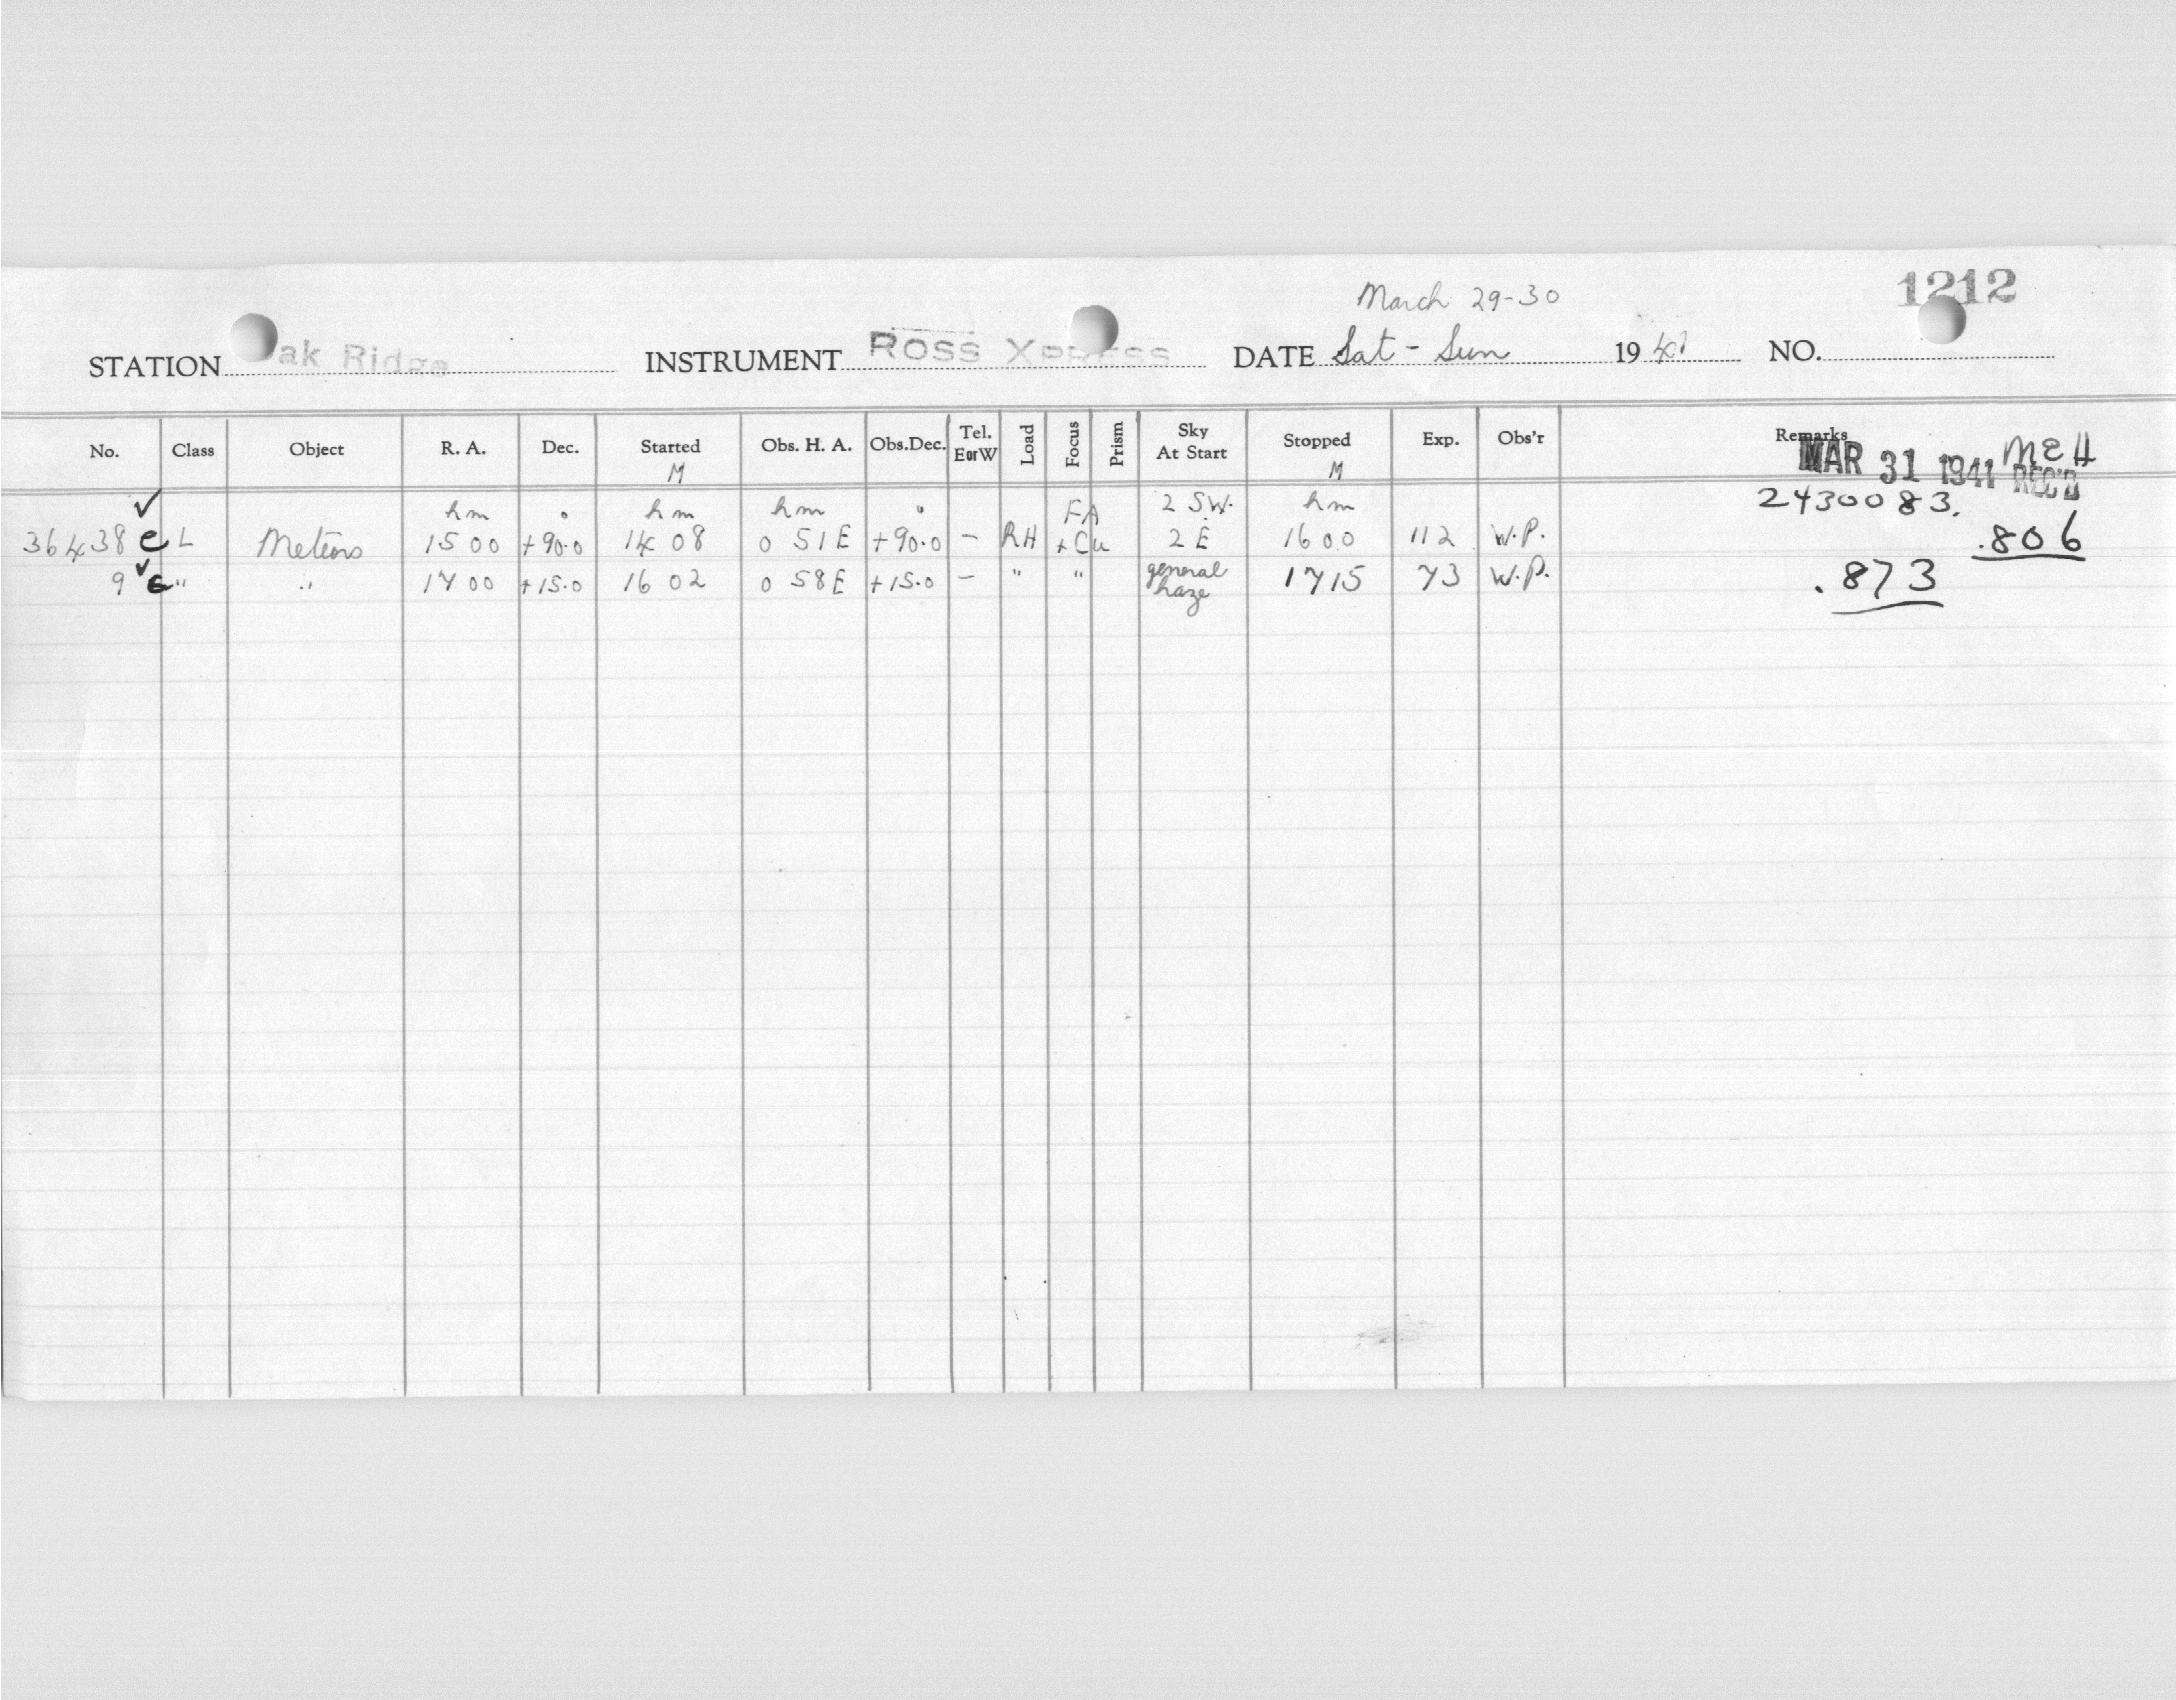 March 29-30
1212
STATION Oak Ridge INSTRUMENT ROSS XPRESS DATE Sat - Sun 1941 NO.
No. Class Object R. A. Dec. Started Obs. H. A. Obs.Dec. Tel. E or W Load Focus Prism Sky At Start Stopped Exp. Obs'r Remarks
M M MAR 31 1941 REC'D MEH
✓ h m ° h m h m ° FA 2 SW. h m 2430083.
36438 e L Meteors 15 00 +90.0 14 08 0 51E +90.0 - RH +Cu 2 E 16 00 112 W.P. .806
9 ✓ e " " 17 00 +15.0 16 02 0 58E +15.0 - " " general haze 17 15 73 W.P. .873